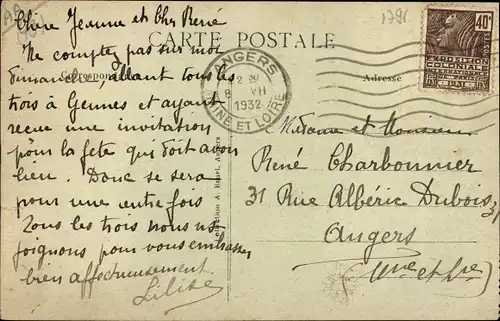 1791
Chère Jeanne et Cher René
Ne comptez pas sur moi
Dimanche, allant tous les
trois à Gennes et ayant
reçue une invitation
pour la fete qui doit avoir
lieu. Donc se sera
pour une autre fois
Tous les trois nous nous
joignons pour vous embrasser
bien affectueusement
Lilise
CARTE POSTALE
Correspondance
Adresse
ANGERS
8 VII
1932
MAINE ET LOIRE
40c
POSTES
EXPOSITION
COLONIALE
INTERNATIONALE
PARIS 1931
Madame et Monsieur
René Charbonnier
31 Rue Albéric Dubois 31
Angers
(Mne et Lre)
Collection A. Bruel, Angers